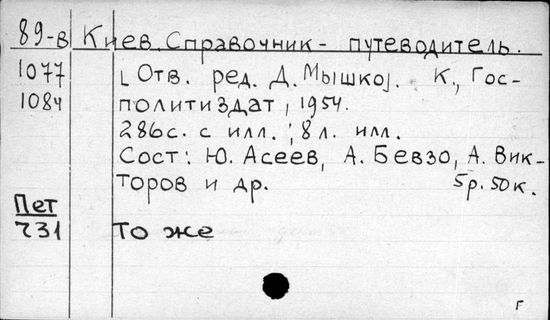 89-в Киев. Справочник - путеводитель.
1077 [Отв. ред. Д. Мышко]. К., Гос-
1084 политиздат, 1954.
286 с. с илл.; 8 л. илл.
Сост: Ю. Асеев, А. Бевзо, А. Вик-
торов и др. 5 р. 50 к.
Пет
231 То же
Г